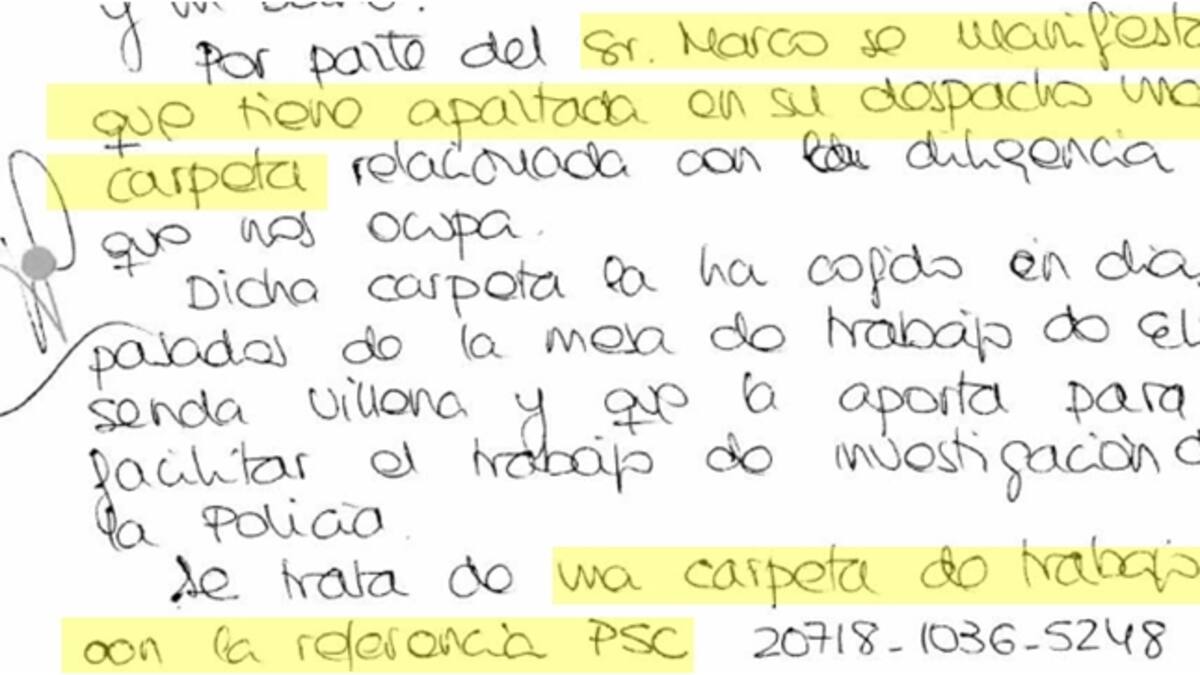 y un
Por parte del Sr. Marco se manifiesta
que tiene apartada en su despacho una
carpeta relacionada con la diligencia
que nos ocupa.
Dicha carpeta la ha cogido en días
pasados de la mesa de trabajo de El
senda Villena y que la aporta para
facilitar el trabajo de investigación d
la Policía.
Se trata de una carpeta de trabajo
con la referencia PSC 20718-1036-5248